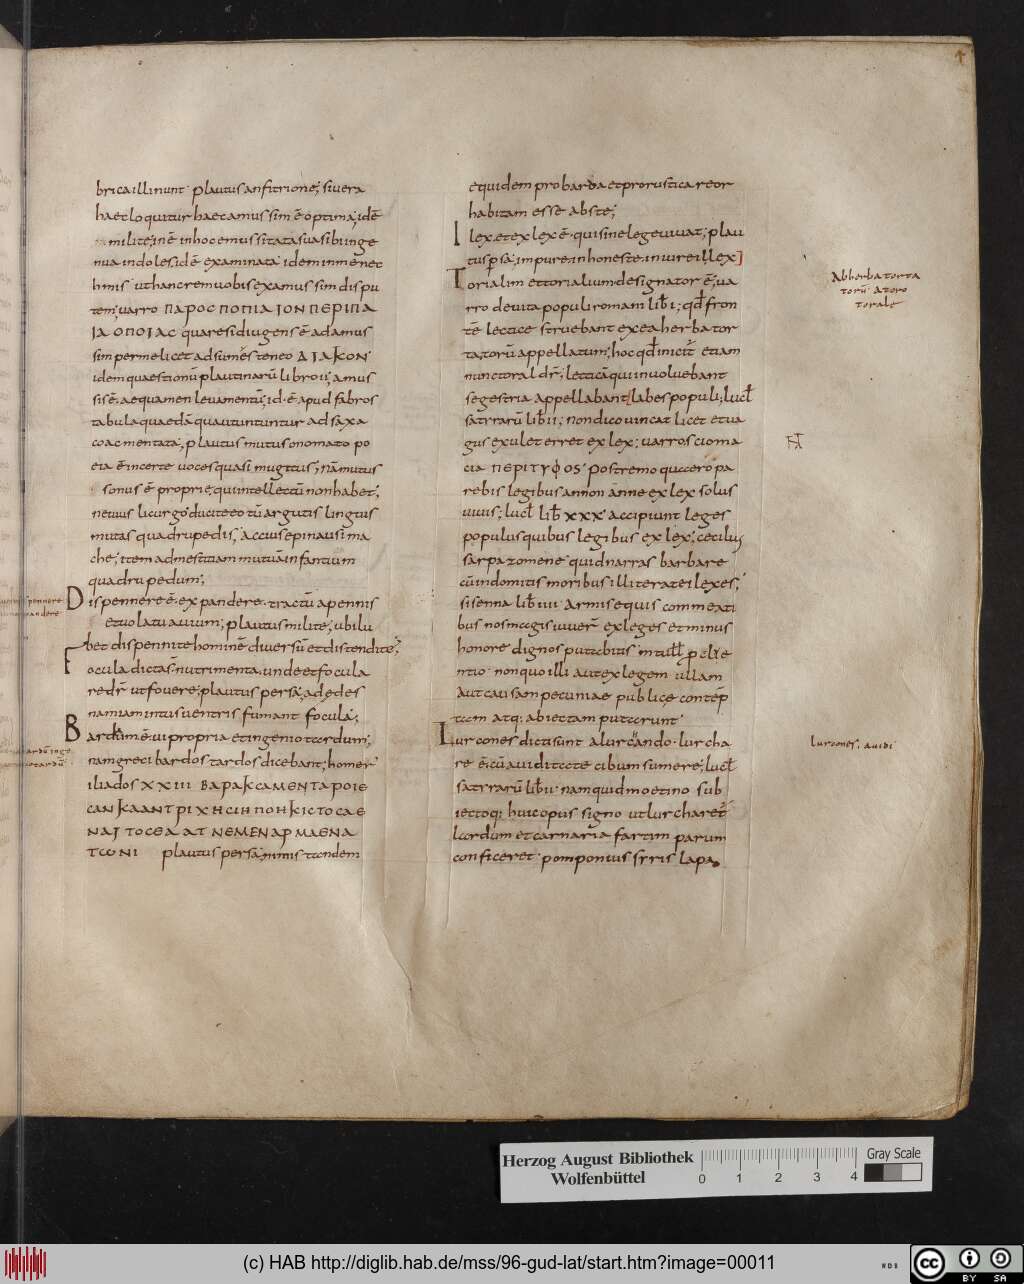 4
bricaillinunt plautus anfitrione; siuera
haec loquitur haec amussim ē optima; idē
milite; inē inhoc emussitata sua sibi inge
nua indoles, idē examinata idem inmenec
himis ut hanc rem uobis examussim dispu
tem; uarro
quare si diugens ē adamus
sim per me licet adsumes teneo
idem quaestionū plautinarū libro ii; amus
sis ē aequamen leuamentū; id ē apud fabros
tabula quaedā qua utuntur ad saxa
coacmentata, plautus mutus onomato po
eia ē incerte uoces quasi mugitus; nā mutus
sonus ē proprie, qui intellectū non habet;
neuius licurgo ducite eo tū argutis linguis
mutas quadrupedis, accius epinausima
che; item ad mestitiam mutuā infantium
quadrupedum;
Dispennere ē expandere tractū a pennis
et uolatu auium; plautus milite, ubi lu
bet dispennite hominē diuersū et distendite;
Focula dicta s̄ nutrimenta, unde et focula
redr̄ ut fouere; plautus persa, ad ędes
namiam intus uentris fumant focula;
Bardum ē ui propria et ingenio tardum;
nam greci bardos tardos dicebant; homer
iliados XXIII ΒΑΡΑΚCΑΜΕΝΤΑΡΟΙΕ
ΝΕΜΕΝΑΡ ΜΑΕΝΑ
ΤωΝΙ plautus persa, nimis tandem
equidem pro barda et pro rustica reor
habitam esse abs te;
Ilex et exlex ē qui sine lege uiuat; plau
tus p̄sa, impure inhoneste iniure illex
Torialim et torialium designator ē; ua
rro de uita populi romani lib̄ i; qd̄ fron
tē lectice struebant ex ea herba tor
ta torū appellatum; hoc qd̄ inicit̄ etiam
nunc toral dr̄; lecticā qui inuoluebant
segestria appellabant labes populi; lucl̄
satrrarū lib̄ ii; non dico uincat licet et ua
gus exul et erret exlex; uarro scioma
cia ΠΕΡΙΤΥΦΟS postremo quęcero pa
rebis legibus annon anne exlex solus
uiuis; lucl̄ lib̄ XXX accipiunt leges
populus quibus legibus exlex; cecilius
sarpazomene quid narras barbare
cū indomitis moribus illiterate ilexes;
sisenna lib̄ iiii armis equis commeati
bus nos magis iuuer̄ exleges et minus
honore dignos putabitis
ntio non quo illi aut exlegem ullam
aut causam pecuniae publice contēp
tam atq; abiectam putarunt
Lurcones dicti sunt a lurcando lurcha
re ē cū auiditate cibum sumere; lucl̄
satrrarū lib̄ ii nam quid moetino sub
iectoq; huic opus signo ut lurcharet̄
lardum et carnaria fartim parum
conficeret pomponius srris lapa
Ab herba torta
torū a toro
torale
Lurcones auidi
Herzog August Bibliothek
Wolfenbüttel
0 1 2 3 4
Gray Scale
(c) HAB http://diglib.hab.de/mss/96-gud-lat/start.htm?image=00011
WDB
cc BY SA